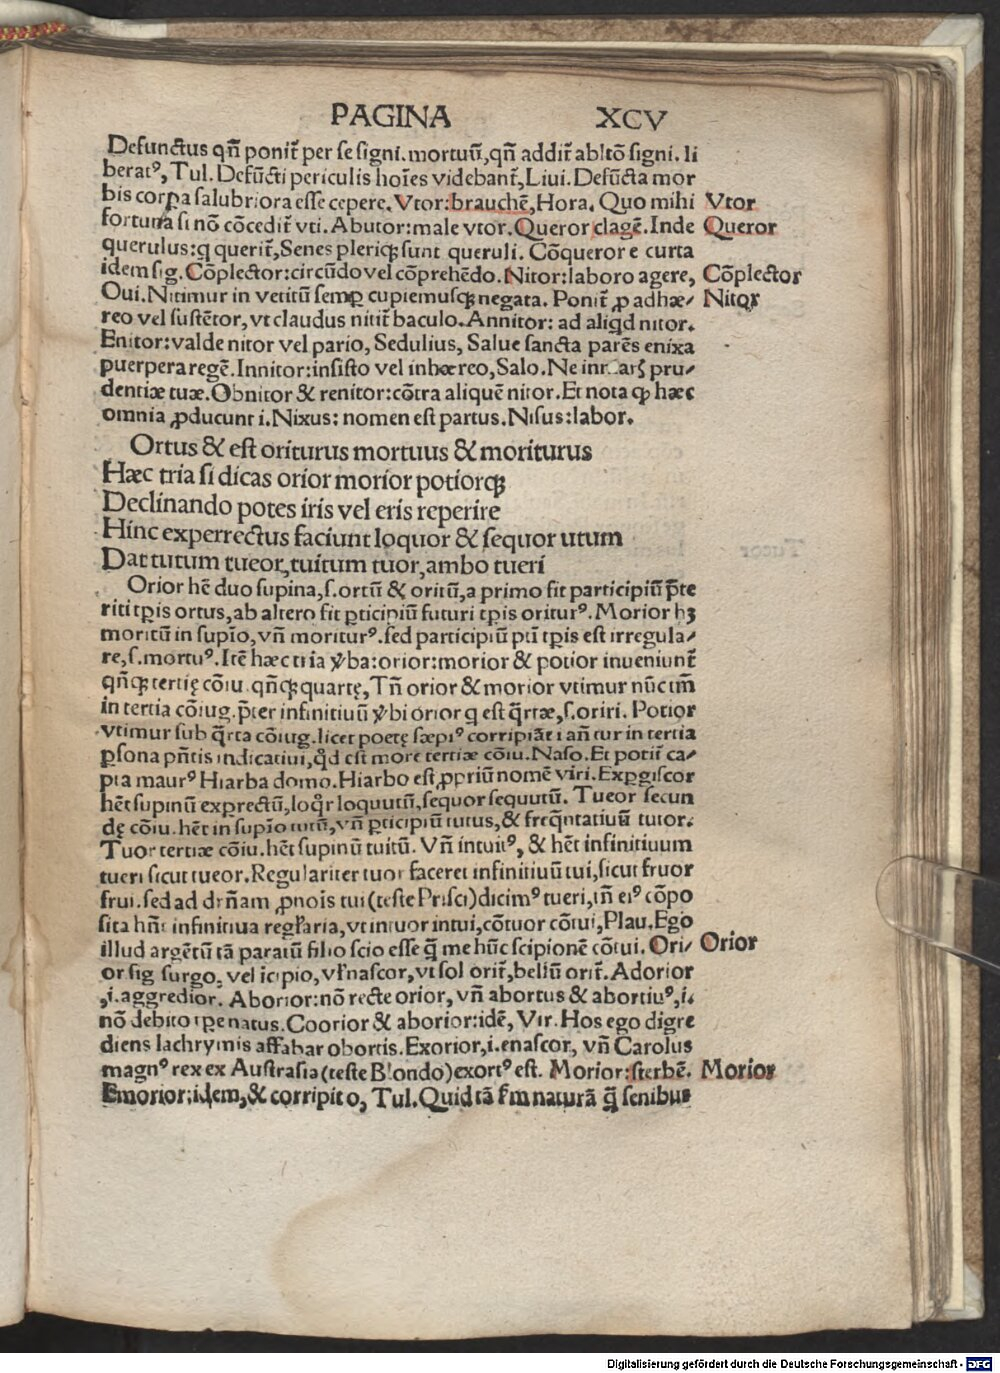 PAGINA XCV
Defunctus qñ ponit᷑ per se signi. mortuū, qñ addit᷑ abltõ signi. li
berat⁹, Tul. Defũcti periculis hoīes videbant᷑, Liui. Defũcta mor
bis corpa salubriora esse cepere. Vtor: brauchē, Hora. Quo mihi Vtor
fortuna si nõ cõcedit᷑ vti. Abutor: male vtor. Queror clagē. Inde Queror
querulus: q querit᷑, Senes pleriqꝫ sunt queruli. Cõqueror e curta
idem sig. Cõplector: circũdo vel cõprehēdo. Nitor: laboro agere, Cõplector
Oui. Nitimur in vetitũ semꝑ cupiemusqꝫ negata. Ponit᷑ ꝓ adhæ- Nitor
reo vel sustētor, vt claudus nitit᷑ baculo. Annitor: ad aliqd nitor.
Enitor: valde nitor vel pario, Sedulius, Salue sancta parēs enixa
puerpera regē. Innitor: insisto vel inhæreo, Salo. Ne pru-
dentiæ tuæ. Obnitor & renitor: cõtra aliquē nitor. Et nota ꝙ hæc
omnia ꝓducunt i. Nixus: nomen est partus. Nisus: labor.
Ortus & est oriturus mortuus & moriturus
Hæc tria si dicas orior morior potiorqꝫ
Declinando potes iris vel eris reperire
Hinc experrectus faciunt loquor & sequor utum
Dat tutum tueor, tuitum tuor, ambo tueri
Orior hē duo supina, s. ortũ & oritũ, a primo fit participiũ p̄te
riti tp̄is ortus, ab altero fit ꝑticipiũ futuri tp̄is oritur⁹. Morior hꝫ
moritũ in supīo, vñ moritur⁹. sed participiũ ptī tp̄is est irregula-
re, s. mortu⁹. Itē hæc tria ỽba: orior: morior & potior inueniunt᷑
qñqꝫ tertię cõiu. qñqꝫ quartę, Tñ orior & morior vtimur nũc tm̄
in tertia cõiug. p̄ter infinitiuũ ỽbi orior q est q̄rtæ, s. oriri. Potior
vtimur sub q̄rta cõiug. licet poetę sæpi⁹ corripiãt i añ tur in tertia
ꝑsona pñtis indicatiui, qd est more tertiæ cõiu. Naso. Et potit᷑ ca-
pta maur⁹ Hiarba domo. Hiarbo est ꝓpriũ nomē viri. Expgiscor
hēt supinũ exꝑrectũ, loqr loquutũ, sequor sequutũ. Tueor secun
dę cõiu. hēt in supīo tutũ, vñ ꝑticipiũ tutus, & freq̄ntatiuũ tutor.
Tuor tertiæ cõiu. hēt supinũ tuitũ. Vñ intuit⁹, & hēt infinitiuum
tueri sicut tueor. Regulariter tuor faceret infinitiuũ tui, sicut fruor
frui. sed ad drñam ꝓnoīs tui (teste Prisci) dicim⁹ tueri, tñ ei⁹ cõpo
sita hñt infinitiua reglaria, vt intuor intui, cõtuor cõtui, Plau. Ego
illud argētũ tã paratũ filio scio esse q̄ me hũc scipionē cõtui. Ori- Orior
or sig surgo, vel īcipio, vl nascor, vt sol orit᷑, bellũ orit᷑. Adorior
,i. aggredior. Aborior: nõ recte orior, vñ abortus & abortiu⁹, i.
nõ debito tpe natus. Coorior & aborior: idē, Vir. Hos ego digre
diens lachrymis affabar obortis. Exorior, i. enascor, vñ Carolus
magn⁹ rex ex Austrasia (teste Blondo) exort⁹ est. Morior: sterbē. Morior
Emorior: idem, & corripit o, Tul. Quid tã s̄m naturã q̄ senibus
Digitalisierung gefördert durch die Deutsche Forschungsgemeinschaft - DFG